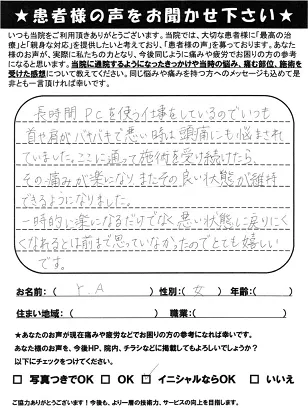 ★患者様の声をお聞かせ下さい★
いつも当院をご利用頂きありがとうございます。当院では、大切な患者様に「最高の治
療」と「親身な対応」を提供したいと考えており、「患者様の声」を募っております。あなた
様のお声が、実際に私たちの力となり、今後同じように痛みや疲労でお困りの方の参考
になると思います。当院に通院するようになったきっかけや当時の悩み、痛む部位、施術を
受けた感想について教えてください。同じ悩みや痛みを持つ方へのメッセージも込めて是
非とも一言頂ければ幸いです。
長時間PCを使う仕事をしているのでいつも
首や肩がバキバキで悪い時は頭痛にも悩まされ
ていました。ここに通って施術を受け続けたら、
その痛みが楽になりまたその良い状態が維持
できるようになりました。
一時的に楽になるだけでなく悪い状態に戻りにく
くなれるとは前まで思っていなかったのでとても嬉しい
です。
お名前:( Y.A ) 性別:( 女 ) 年齢:( )
住まい地域:( ) 職業:( )
★あなたのお声が現在痛みや疲労などでお困りの方の参考になれば幸いです。
あなた様のお声を、今後HP、院内、チラシなどに掲載してもよろしいでしょうか?
以下にチェックをつけてください。
□ 写真つきでOK □ OK ☑ イニシャルならOK □ いいえ
ご協力ありがとうございます!今後も、より一層の技術力、サービスの向上を目指します。